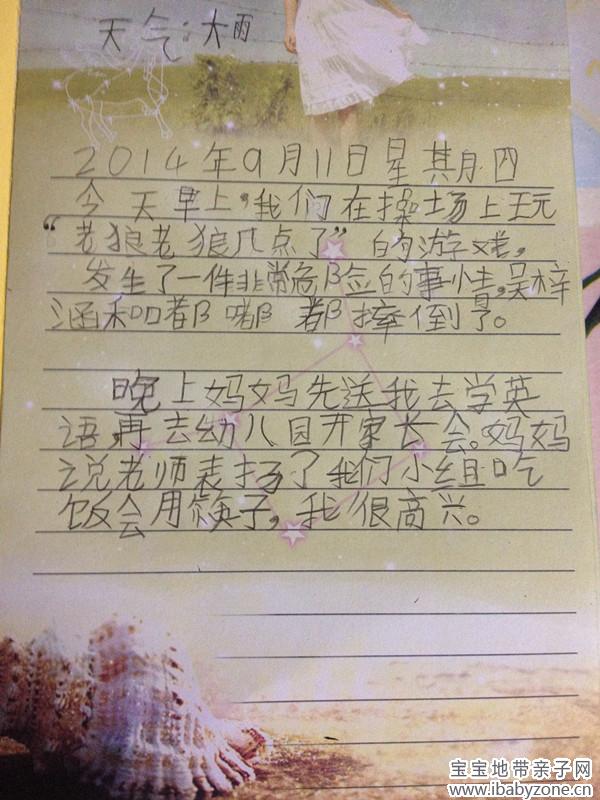 天气:大雨
2014年9月11日星期四
今天早上,我们在操场上玩
“老狼老狼几点了”的游戏,
发生了一件非常危险的事情,吴梓
涵和嘟嘟都摔倒了。
晚上妈妈先送我去学英
语,再去幼儿园开家长会。妈妈
说老师表扬了我们小组吃
饭会用筷子,我很高兴。
宝宝地带亲子网
www.ibabyzone.cn